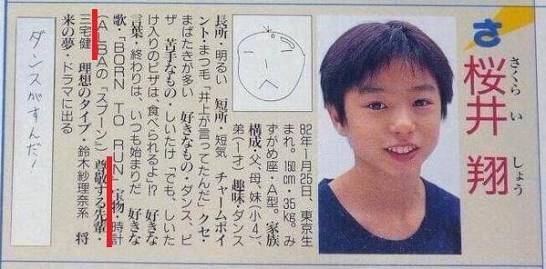 さ
桜井 翔
さくら い しょう
82年1月25日、東京生
まれ。150cm・35kg。み
ずがめ座・A型。家族
構成・父、母、妹(小4)、
弟(1才) 趣味・ダンス
長所・明るい 短所・短気 チャームポイ
ント・まつ毛「井上が言ってたんだ」クセ・
まばたきが多い 好きなもの・ダンス、ピ
ザ 苦手なもの・しいたけ「でも、しいた
け入りのピザは、食べられるよ!?」 好きな
言葉・終わりは、いつも始まりだ 好きな
歌・「BORN TO RUN」 宝物・時計
(ALBAの『スプーン』) 尊敬する先輩・
三宅健 理想のタイプ・鈴木紗理奈系 将
来の夢・ドラマに出る
ダンスがすんだ!